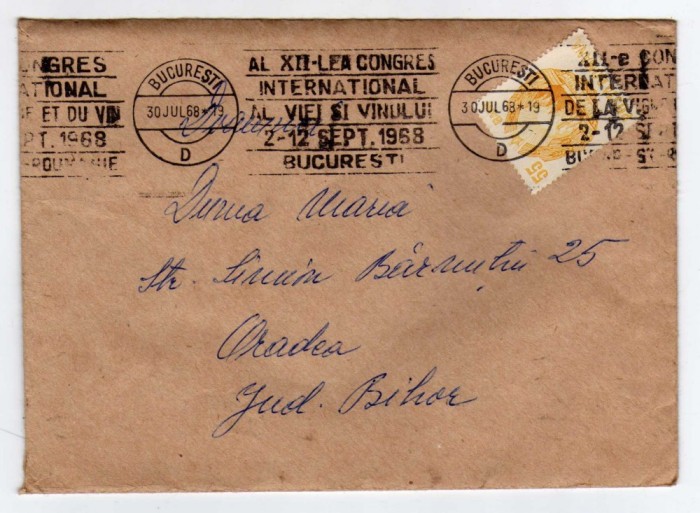 NGRES
ATIONAL
E ET DU VIN
PT. 1968
ROUMANIE
BUCURESTI
30 JUL 68 * 19
D
AL XII-LEA CONGRES
INTERNATIONAL
AL VIEI SI VINULUI
2-12 SEPT. 1968
BUCURESTI
BUCURESTI
30 JUL 68 * 19
D
XII-e CON
INTERNA
DE LA VIGNE
2-12 SE
55
Duma Maria
Str. Simion Bărnuțiu 25
Oradea
Jud. Bihor